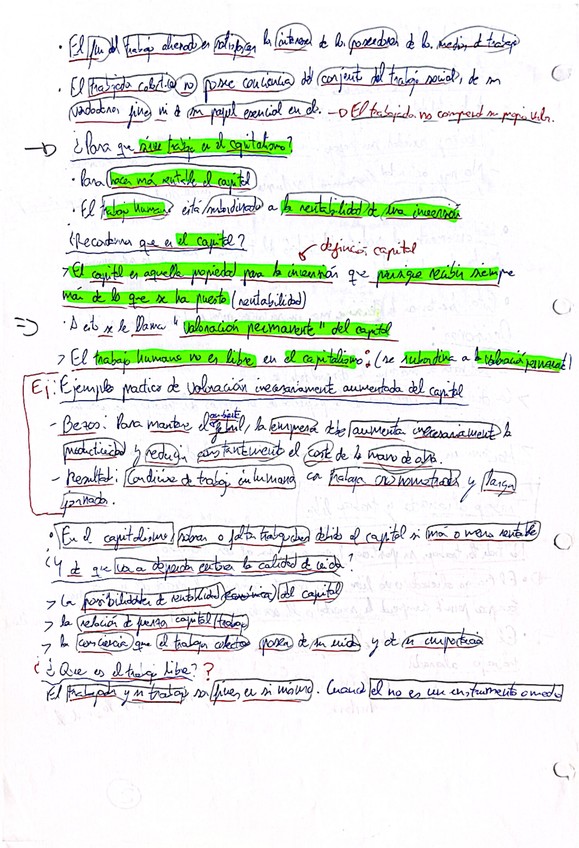 · El fin del trabajo alienado es satisfacer los intereses de los poseedores de los medios de trabajo
· El trabajador colectivo no posee conciencia del conjunto del trabajo social, de sus
verdaderos fines ni de su papel esencial en él. → El trabajador no comprend su propio valor.
→ ¿Para que sirve trabajo en el capitalismo?
· Para hacer más rentable el capital
· El trabajo humano está subordinado a la rentabilidad de una inversión
¿Recordemos que es el capital?
definición capital
> El capital es aquella propiedad para la inversión que persigue recibir siempre
más de lo que se ha puesto (rentabilidad)
⇒ · A esto se le llama "valoración permanente" del capital
> El trabajo humano no es libre en el capitalismo: (se subordina a la valoración permanente)
Ej: Ejemplo practico de valoración incesariamente aumentada del capital
- Bezos: Para mantener el la empresa debe aumentar incesariamente la
productividad y reducir constantemente el coste de la mano de obra.
- Resultado: Condiciones de trabajo inhumana con trabajo cronometrado y larga
jornada.
· En el capitalismo, sobran o faltan trabajadores debido al capital si más o menos rentable
¿Y de que va a depender entonces la calidad de vida?
> La posibilidades de rentabilidad económica del capital
> la relación de fuerza capital/trabajo
> la conciencia que el trabajador colectivo posea de su unidad y de su importancia
¿ ¿Que es el trabajo libre? ?
El trabajador y su trabajo son fines en si mismo. Cuando el no es un instrumento o medio